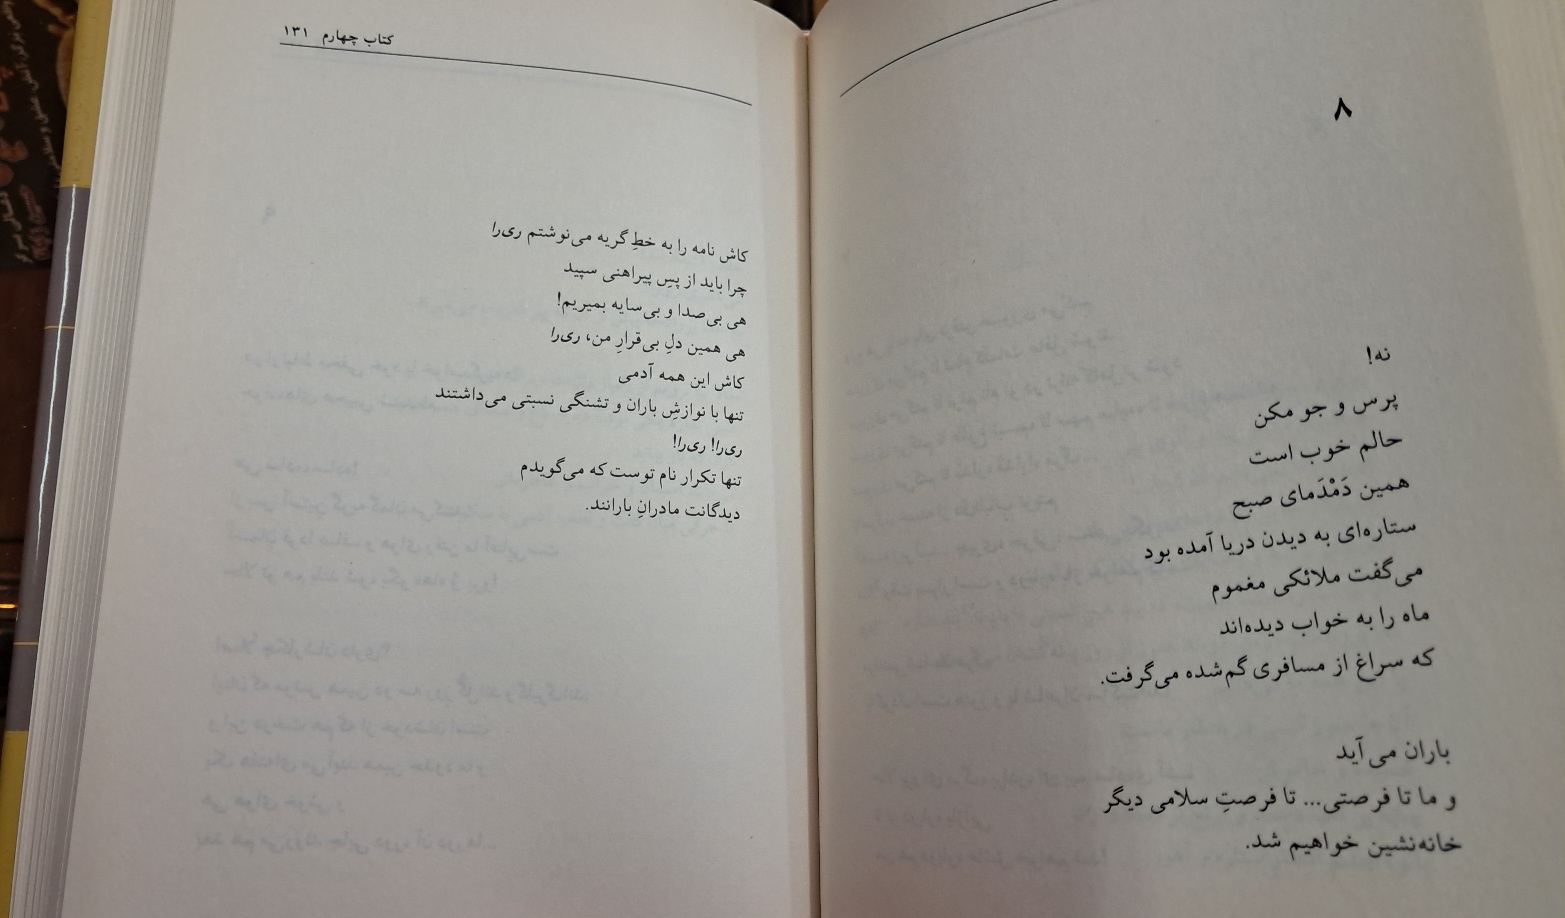 ۸
نه!
پرس و جو مکن
حالم خوب است
همین دَمْدَمای صبح
ستاره‌ای به دیدن دریا آمده بود
می‌گفت ملائکی مغموم
ماه را به خواب دیده‌اند
که سراغ از مسافری گم‌شده می‌گرفت.
باران می‌آید
و ما تا فرصتی... تا فرصتِ سلامی دیگر
خانه‌نشین خواهیم شد.
کتاب چهارم ۱۳۱
کاش نامه را به خطِ گریه می‌نوشتم ری‌را
چرا باید از پسِ پیراهنی سپید
هی بی‌صدا و بی‌سایه بمیریم!
هی همین دلِ بی‌قرارِ من، ری‌را
کاش این همه آدمی
تنها با نوازشِ باران و تشنگی نسبتی می‌داشتند
ری‌را! ری‌را!
تنها تکرار نام توست که می‌گویدم
دیدگانت مادرانِ بارانند.